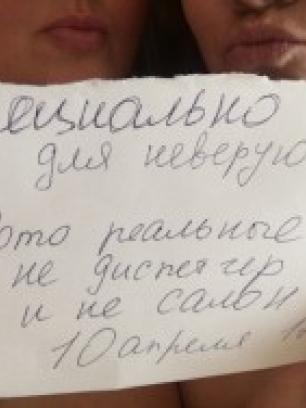 ециально
для неверую
ото реальные
не диспетчер
и не салон
10 апреля 1